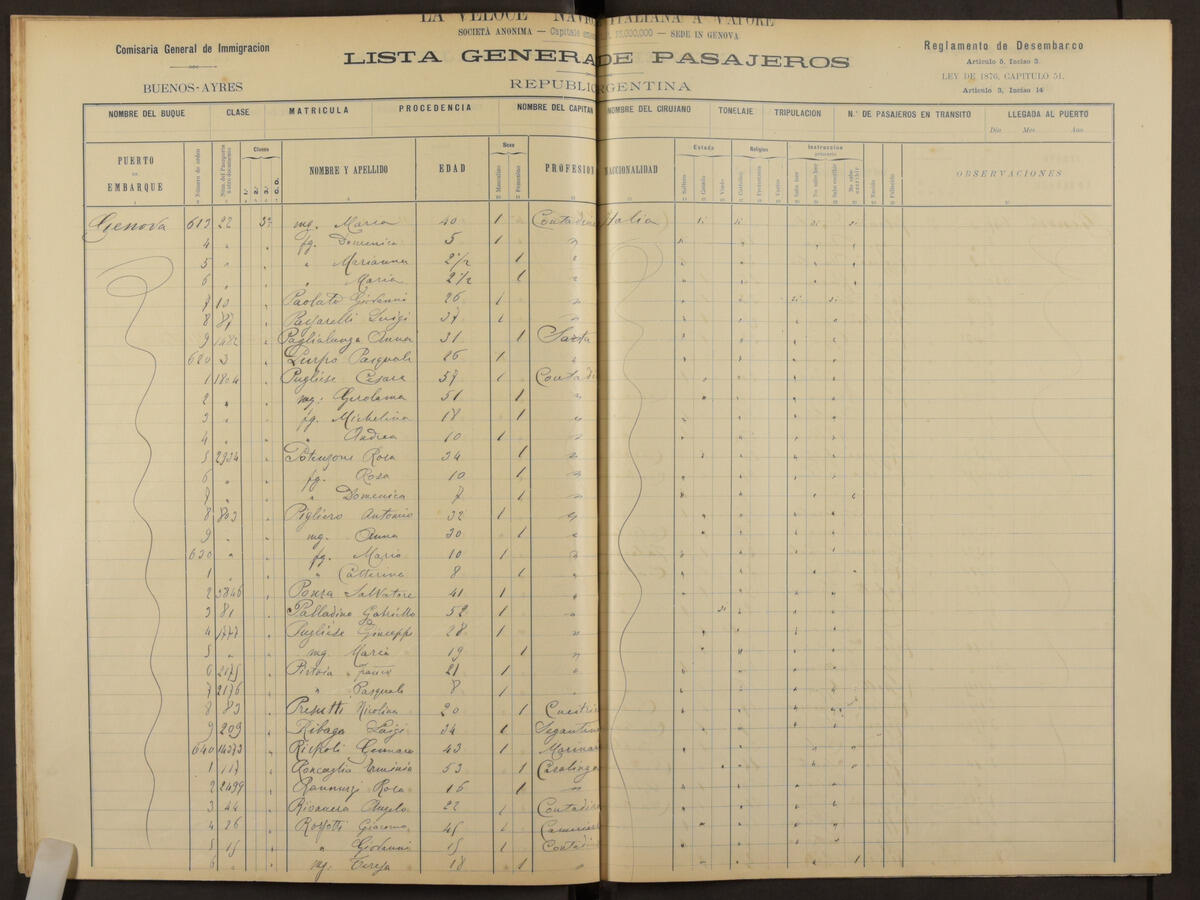 LA VELOCE NAVIG ITALIANA A VAPORE
SOCIETÀ ANONIMA — Capitale emes 15,000,000 — SEDE IN GENOVA
Comisaria General de Immigracion
BUENOS-AYRES
LISTA GENERA DE PASAJEROS
REPUBLIC RGENTINA
Reglamento de Desembarco
Articulo 5, Inciso 3.
LEY DE 1876, CAPITULO 51.
Articulo 3, Inciso 14
NOMBRE DEL BUQUE CLASE MATRICULA PROCEDENCIA NOMBRE DEL CAPITAN NOMBRE DEL CIRUJANO TONELAJE TRIPULACION N.º DE PASAJEROS EN TRANSITO LLEGADA AL PUERTO
Dia Mes Ano
PUERTO EMBARQUE Número de orden Clases NOMBRE Y APELLIDO EDAD Sexo Masculino Femenino PROFESION NACCIONALIDAD Estado Soltero Casado Viudo Religion Catolica Protestante Varios Instruccion Sabe leer No sabe leer Sabe escribir No sabe escribir OBSERVACIONES
Genova 613 22 3ª mg. Maria 40 1 Contadina Italia
4 " " fg. Domenico 5 1 "
5 " " " Marianna 2 1/2 1 "
6 " " " Maria 2 1/2 1 "
7 10 " Paolato Giovanni 26 1 "
8 87 " Passarelli Luigi 37 1 "
9 1422 " Paglialunga Anna 31 1 Sarta
620 3 " Pasquale 26 1 "
1 1804 " Pugliese Cesare 57 1 Contadi
2 " " mg: Gerolama 51 1 "
3 " " fg. Michelina 18 1 "
4 " " " Andrea 10 1 "
5 2934 " Potenzone Rosa 34 1 "
6 " " fg. Rosa 10 1 "
7 " " " Domenica 7 1 "
8 803 " Pigliero Antonio 32 1 "
9 " " mg. Anna 30 1 "
630 " " fg. Mario 10 1 "
1 " " " Catterina 8 1 "
2 3846 " Ponza Salvatore 41 1 "
3 81 " Palladino Gabriello 52 1 "
4 1777 " Pugliese Giuseppe 28 1 "
5 " " mg. Maria 19 1 "
6 2175 " Pistoia 21 1 "
7 2176 " " Pasquale 8 1 "
8 83 " Presutti Nicolina 20 1
9 209 " Ribaga Luigi 34 1 Segantino
640 14373 " Rispoli Gennaro 43 1 Marinar
1 117 " Roncaglia Erminia 53 1 Casalinga
2 2499 " Rannunzi Rosa 16 1 "
3 44 " Rivanera Angelo 22 1 Contadin
4 26 " Rossotti Giacomo 45 1 Camerier
5 15 " " Giovanni 15 1 Contadi
6 " mg. Teresa 18 1 "